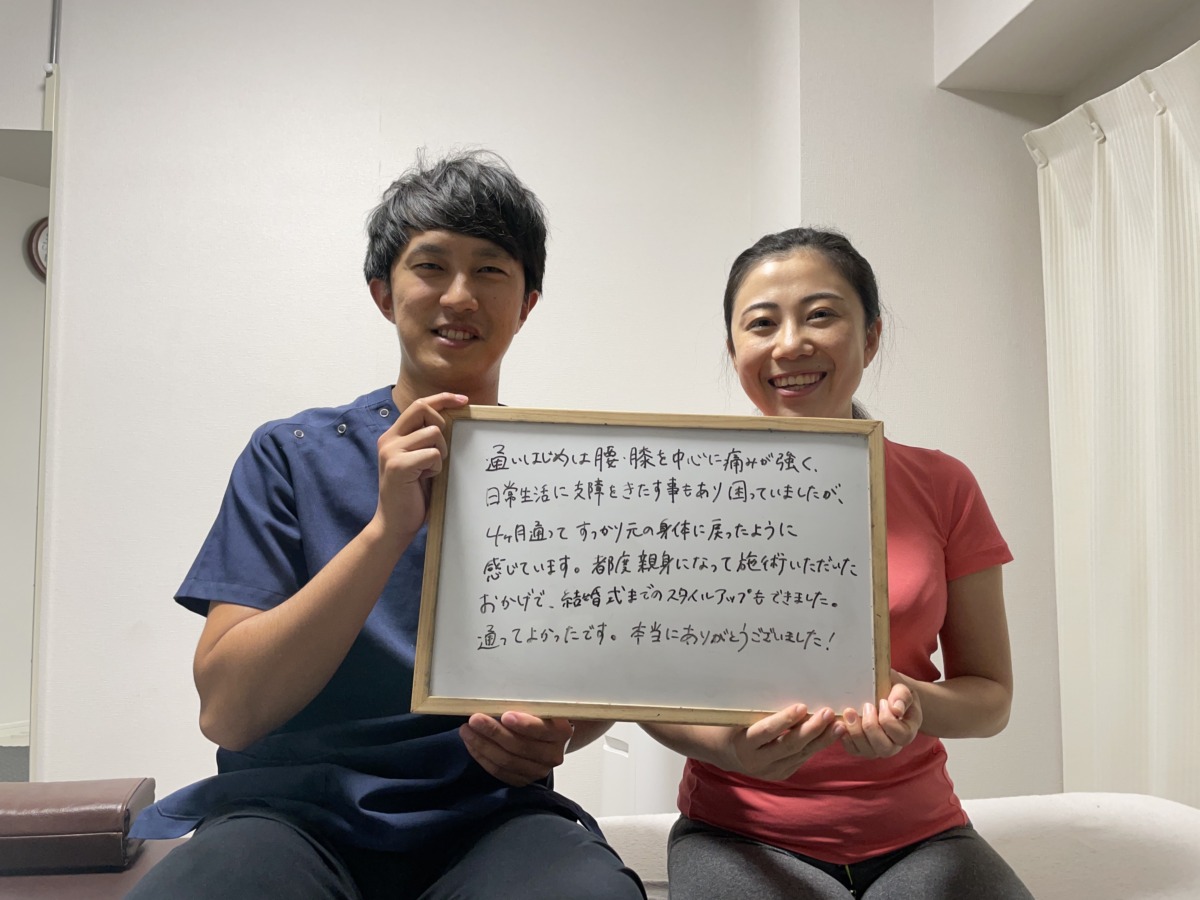 通いはじめは腰・膝を中心に痛みが強く、
日常生活に支障をきたす事もあり困っていましたが、
4ヶ月通ってすっかり元の身体に戻ったように
感じています。都度親身になって施術いただいた
おかげで、結婚式までのスタイルアップもできました。
通ってよかったです。本当にありがとうございました!